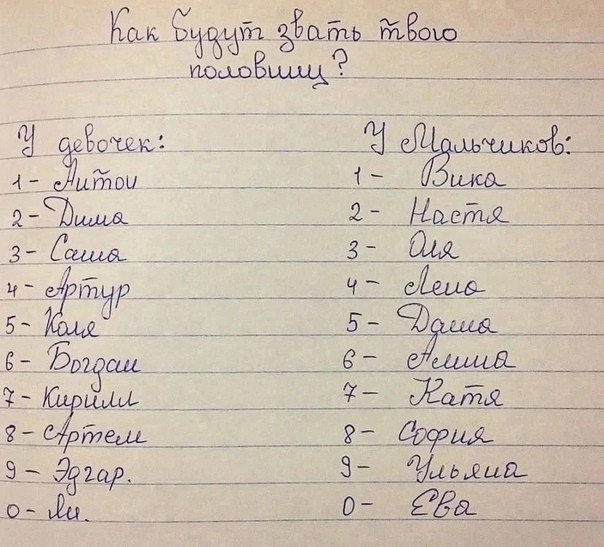 Как будут звать твою
половинц?
У девочек: У Мальчиков:
1 - Антон 1 - Вика
2 - Дима 2 - Настя
3 - Саша 3 - Оля
4 - Артур 4 - Лена
5 - Коля 5 - Даша
6 - Богдан 6 - Алина
7 - Кирилл 7 - Катя
8 - Артем 8 - София
9 - Эдгар. 9 - Ульяна
0 - Ян. 0 - Ева